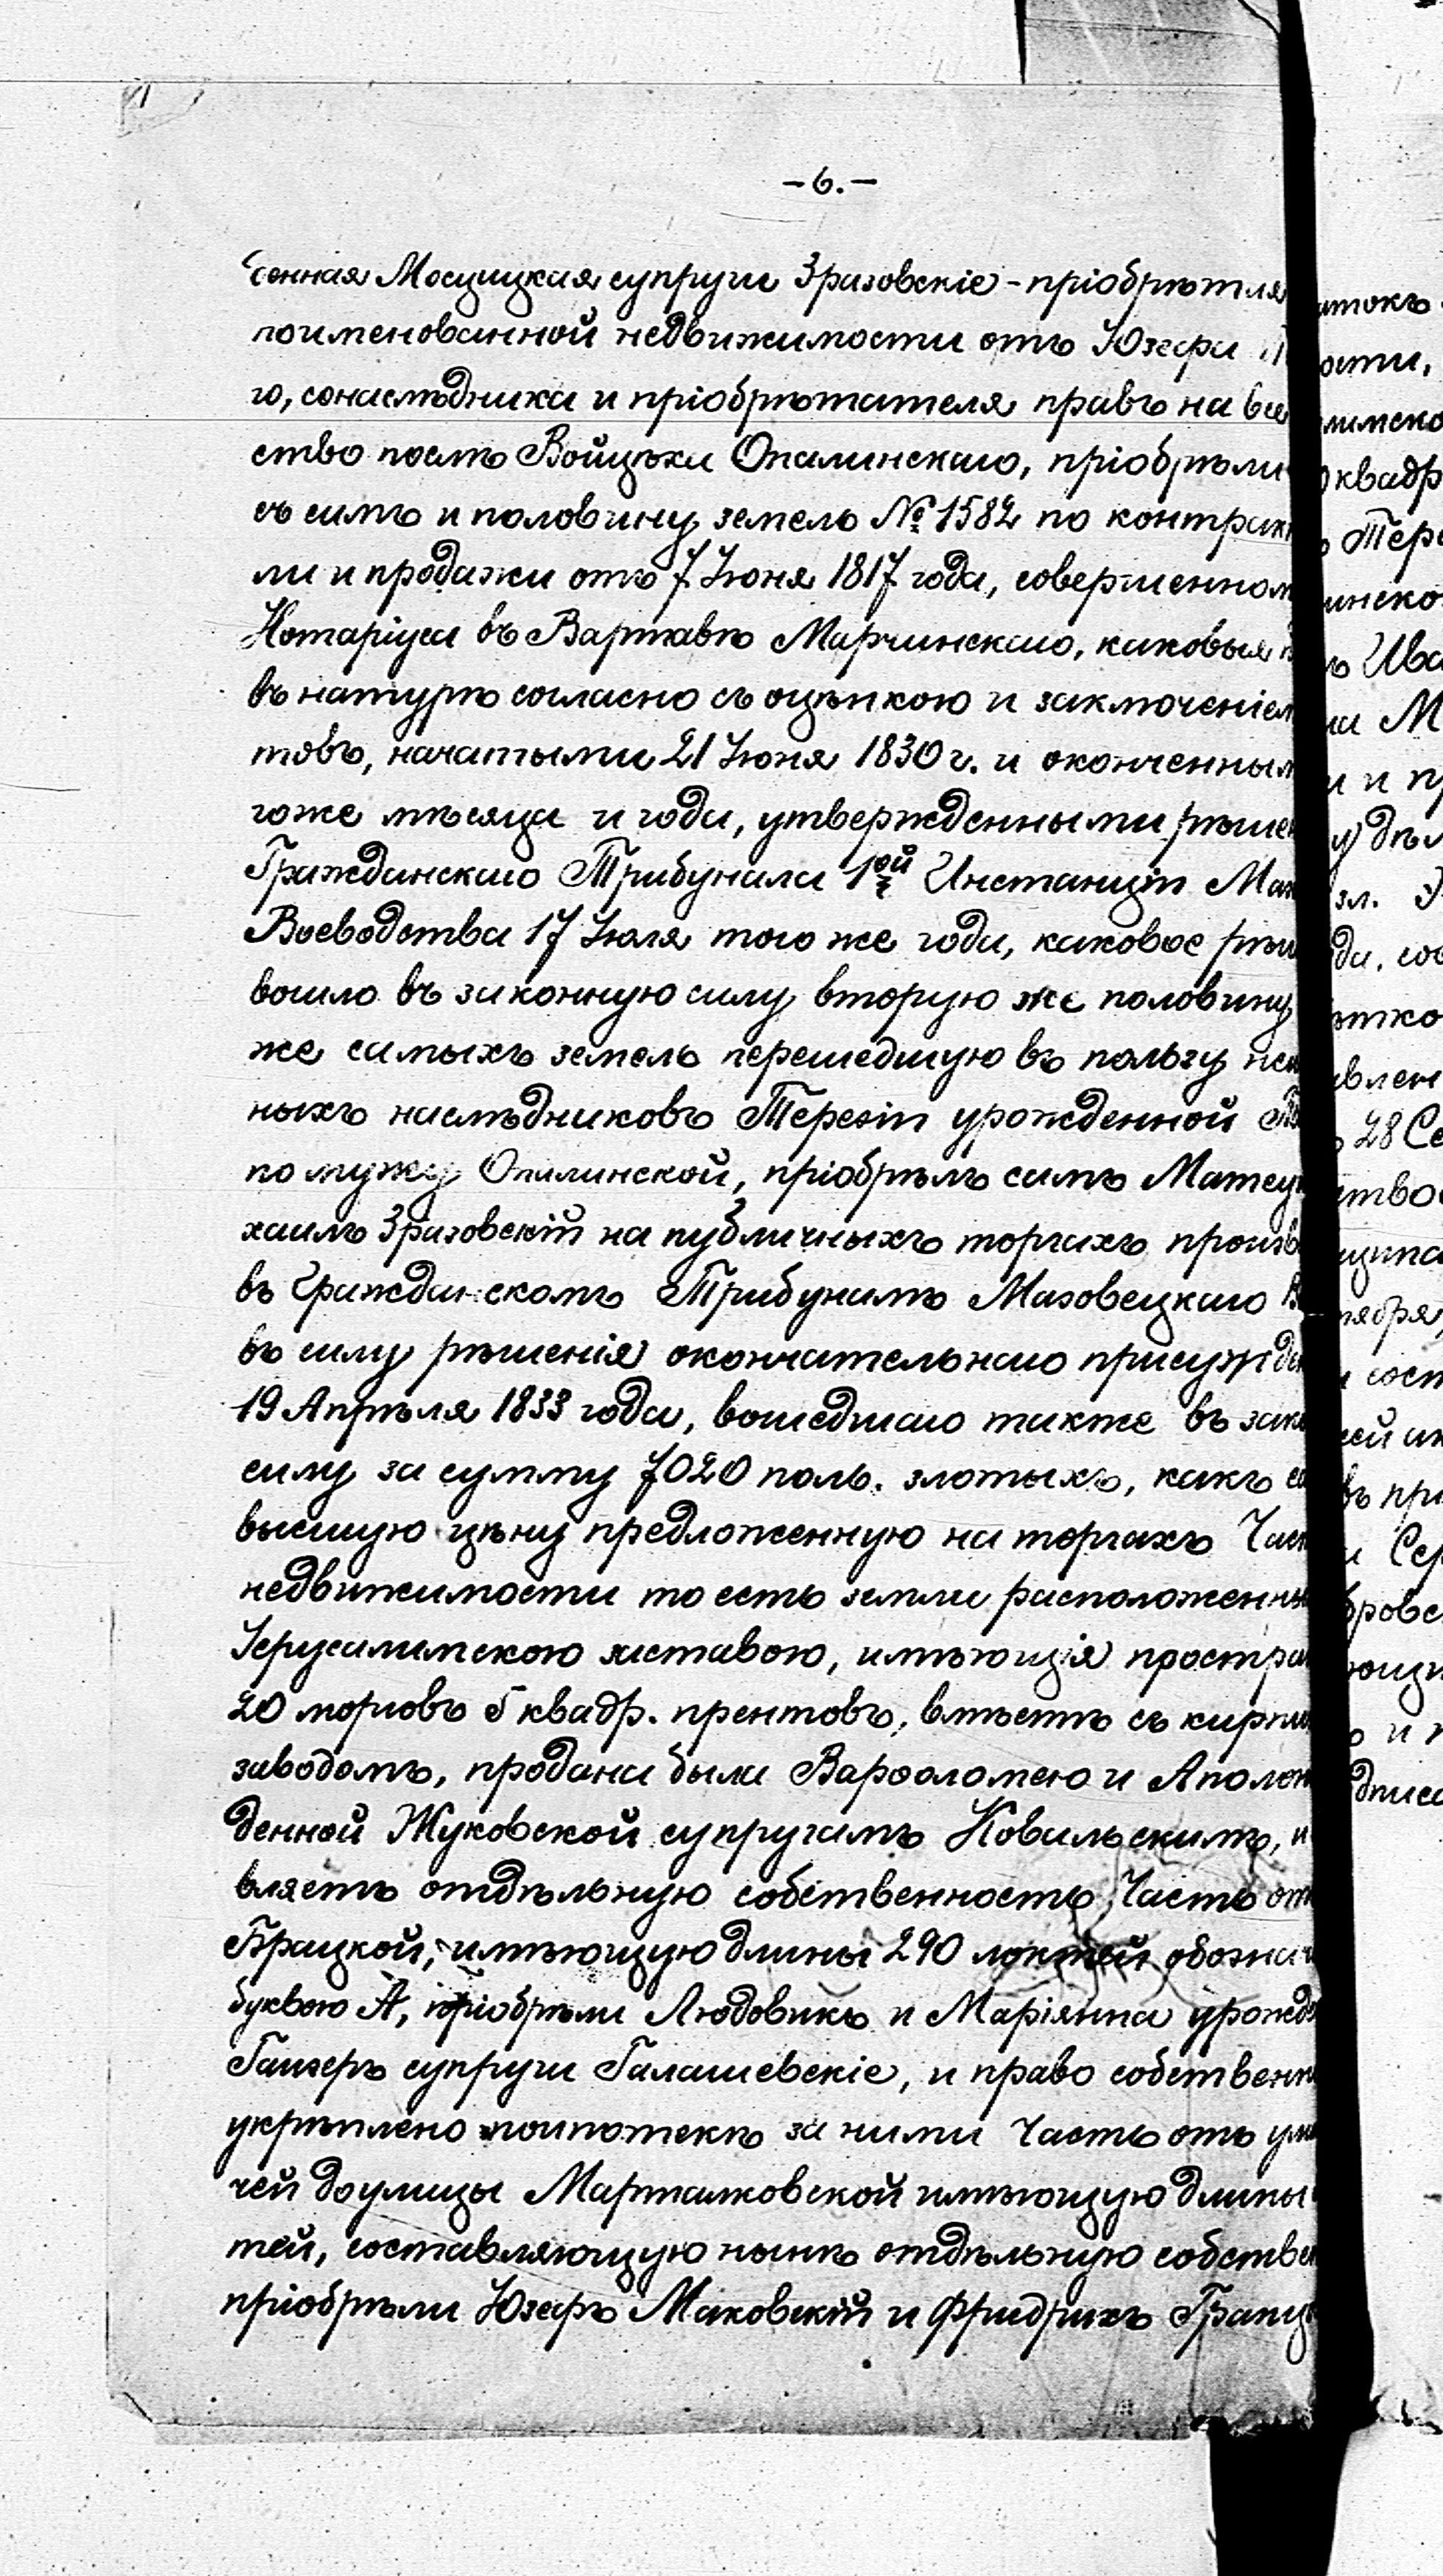 -6.-
денная Мосцицкая супруги Зразовскіе - пріобрѣтая
поименованной недвижимости отъ Юзефа
го, сонаслѣдника и пріобрѣтателя правъ на все
ство послѣ Войцѣха Опалинскаго, пріобрѣли
съ симъ и половину земель № 1582 по контрак
ли и продажи отъ 7 Іюня 1817 года, совершенном
Нотаріуса въ Варшавѣ Марчинскаго, каковыя
въ натурѣ согласно съ оцѣнкою и заключеніем
товъ, начатыми 21 Іюня 1830 г. и оконченным
гоже мѣсяца и года, утвержденными рѣше
Гражданскаго Трибунала 1ой Инстанціи Маз
Воеводства 17 Іюля того же года, каковое рѣш
вошло въ законную силу вторую же половину
же самыхъ земель перешедшую въ пользу
ныхъ наслѣдниковъ Терезіи урожденной
по мужу Опалинской, пріобрѣлъ самъ Матеу
хаилъ Зразовскій на публичныхъ торгахъ произв
въ Гражданскомъ Трибуналѣ Мазовецкаго В
въ силу рѣшенія окончательнаго присужде
19 Апрѣля 1833 года, вошедшаго также въ зако
силу за сумму 7020 поль. злотыхъ, какъ са
высшую цѣну предложенную на торгахъ Част
недвижимости то есть земли расположенны
Іерусалимскою заставою, имѣющія простра
20 морговъ 5 квадр. прентовъ, вмѣстѣ съ кирпи
заводомъ, проданы были Варфоломею и Аполон
денной Жуковской супругамъ Ковальскимъ, и
вляетъ отдѣльную собственность, Часть от
Брацкой, имѣющую длины 290 локтей обознач
буквою А, пріобрѣли Людовикъ и Маріянна урожде
Гаизеръ супруги Галашевскіе, и право собственн
укрѣплено по ипотекѣ за ними Часть отъ ули
чей до улицы Маршалковской имѣющую длины
тей, составляющую нынѣ отдѣльную собствен
пріобрѣли Юзефъ Маковскій и Фридрихъ Грапц
атокъ
ости,
лимско
квадр
Тере
инско
Ива
М
и п
дѣл
зл.
да, со
тко
влен
28 Се
ство
ципа
тября,
сост
ей
въ при
Сер
бровс
ющи
и
дписа